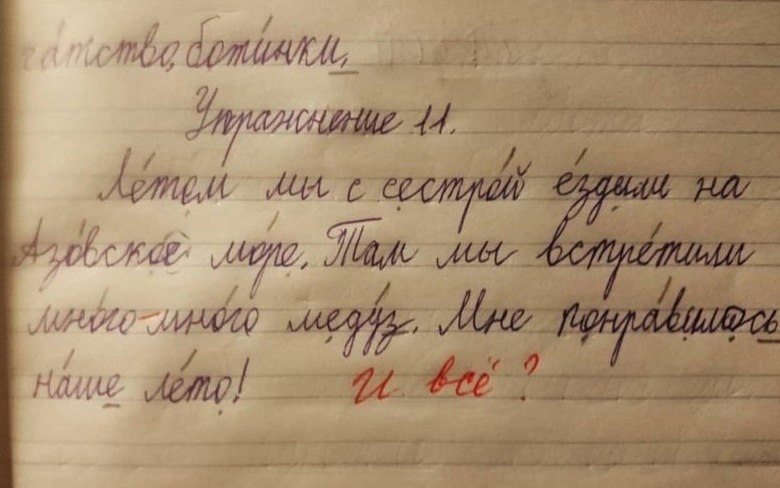 ботинки.
Упражнение 11.
Ле́том мы с сестро́й е́здили на
Азо́вское мо́ре. Там мы встре́тили
мно́го-мно́го меду́з. Мне понра́вилось
на́ше ле́то! И всё?